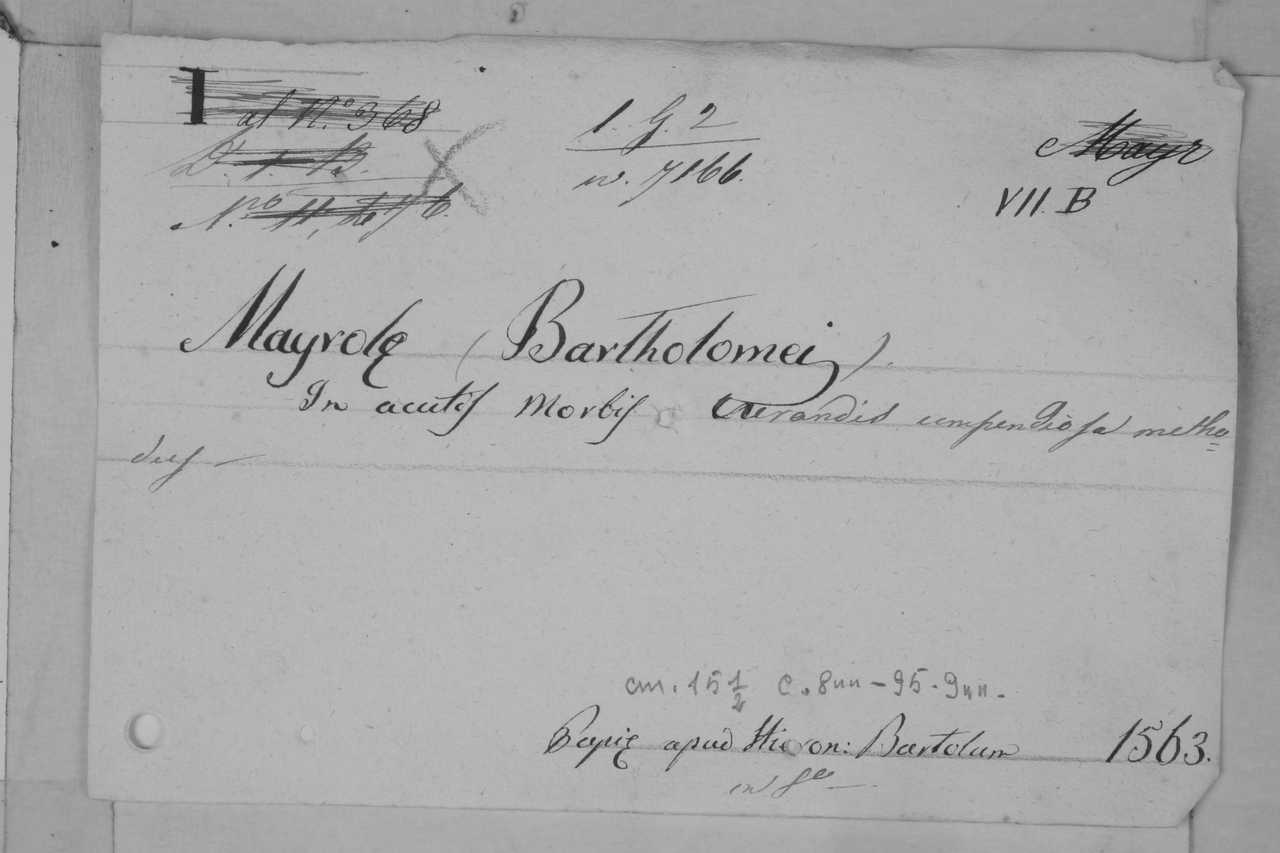 I
al N.º 368
1. G. 2
w. 7166.
Mayr
VII. B
Mayrolę (Bartholomei).
In acutis Morbis Curandis compendiosa metho=
dus
cm. 15 1/2 C. 8nn - 95 - 9nn.
Papię apud Hieron: Bartolum 1563.
in 8º